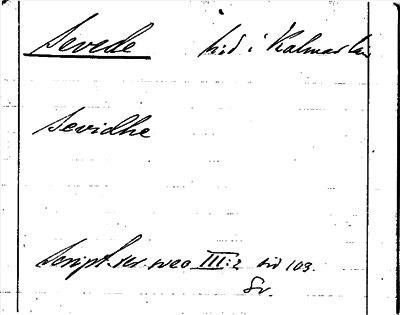 Sevede hd i Kalmar län
Sevidhe
Script. rer. sveo III:2 sid 103.
Sv.